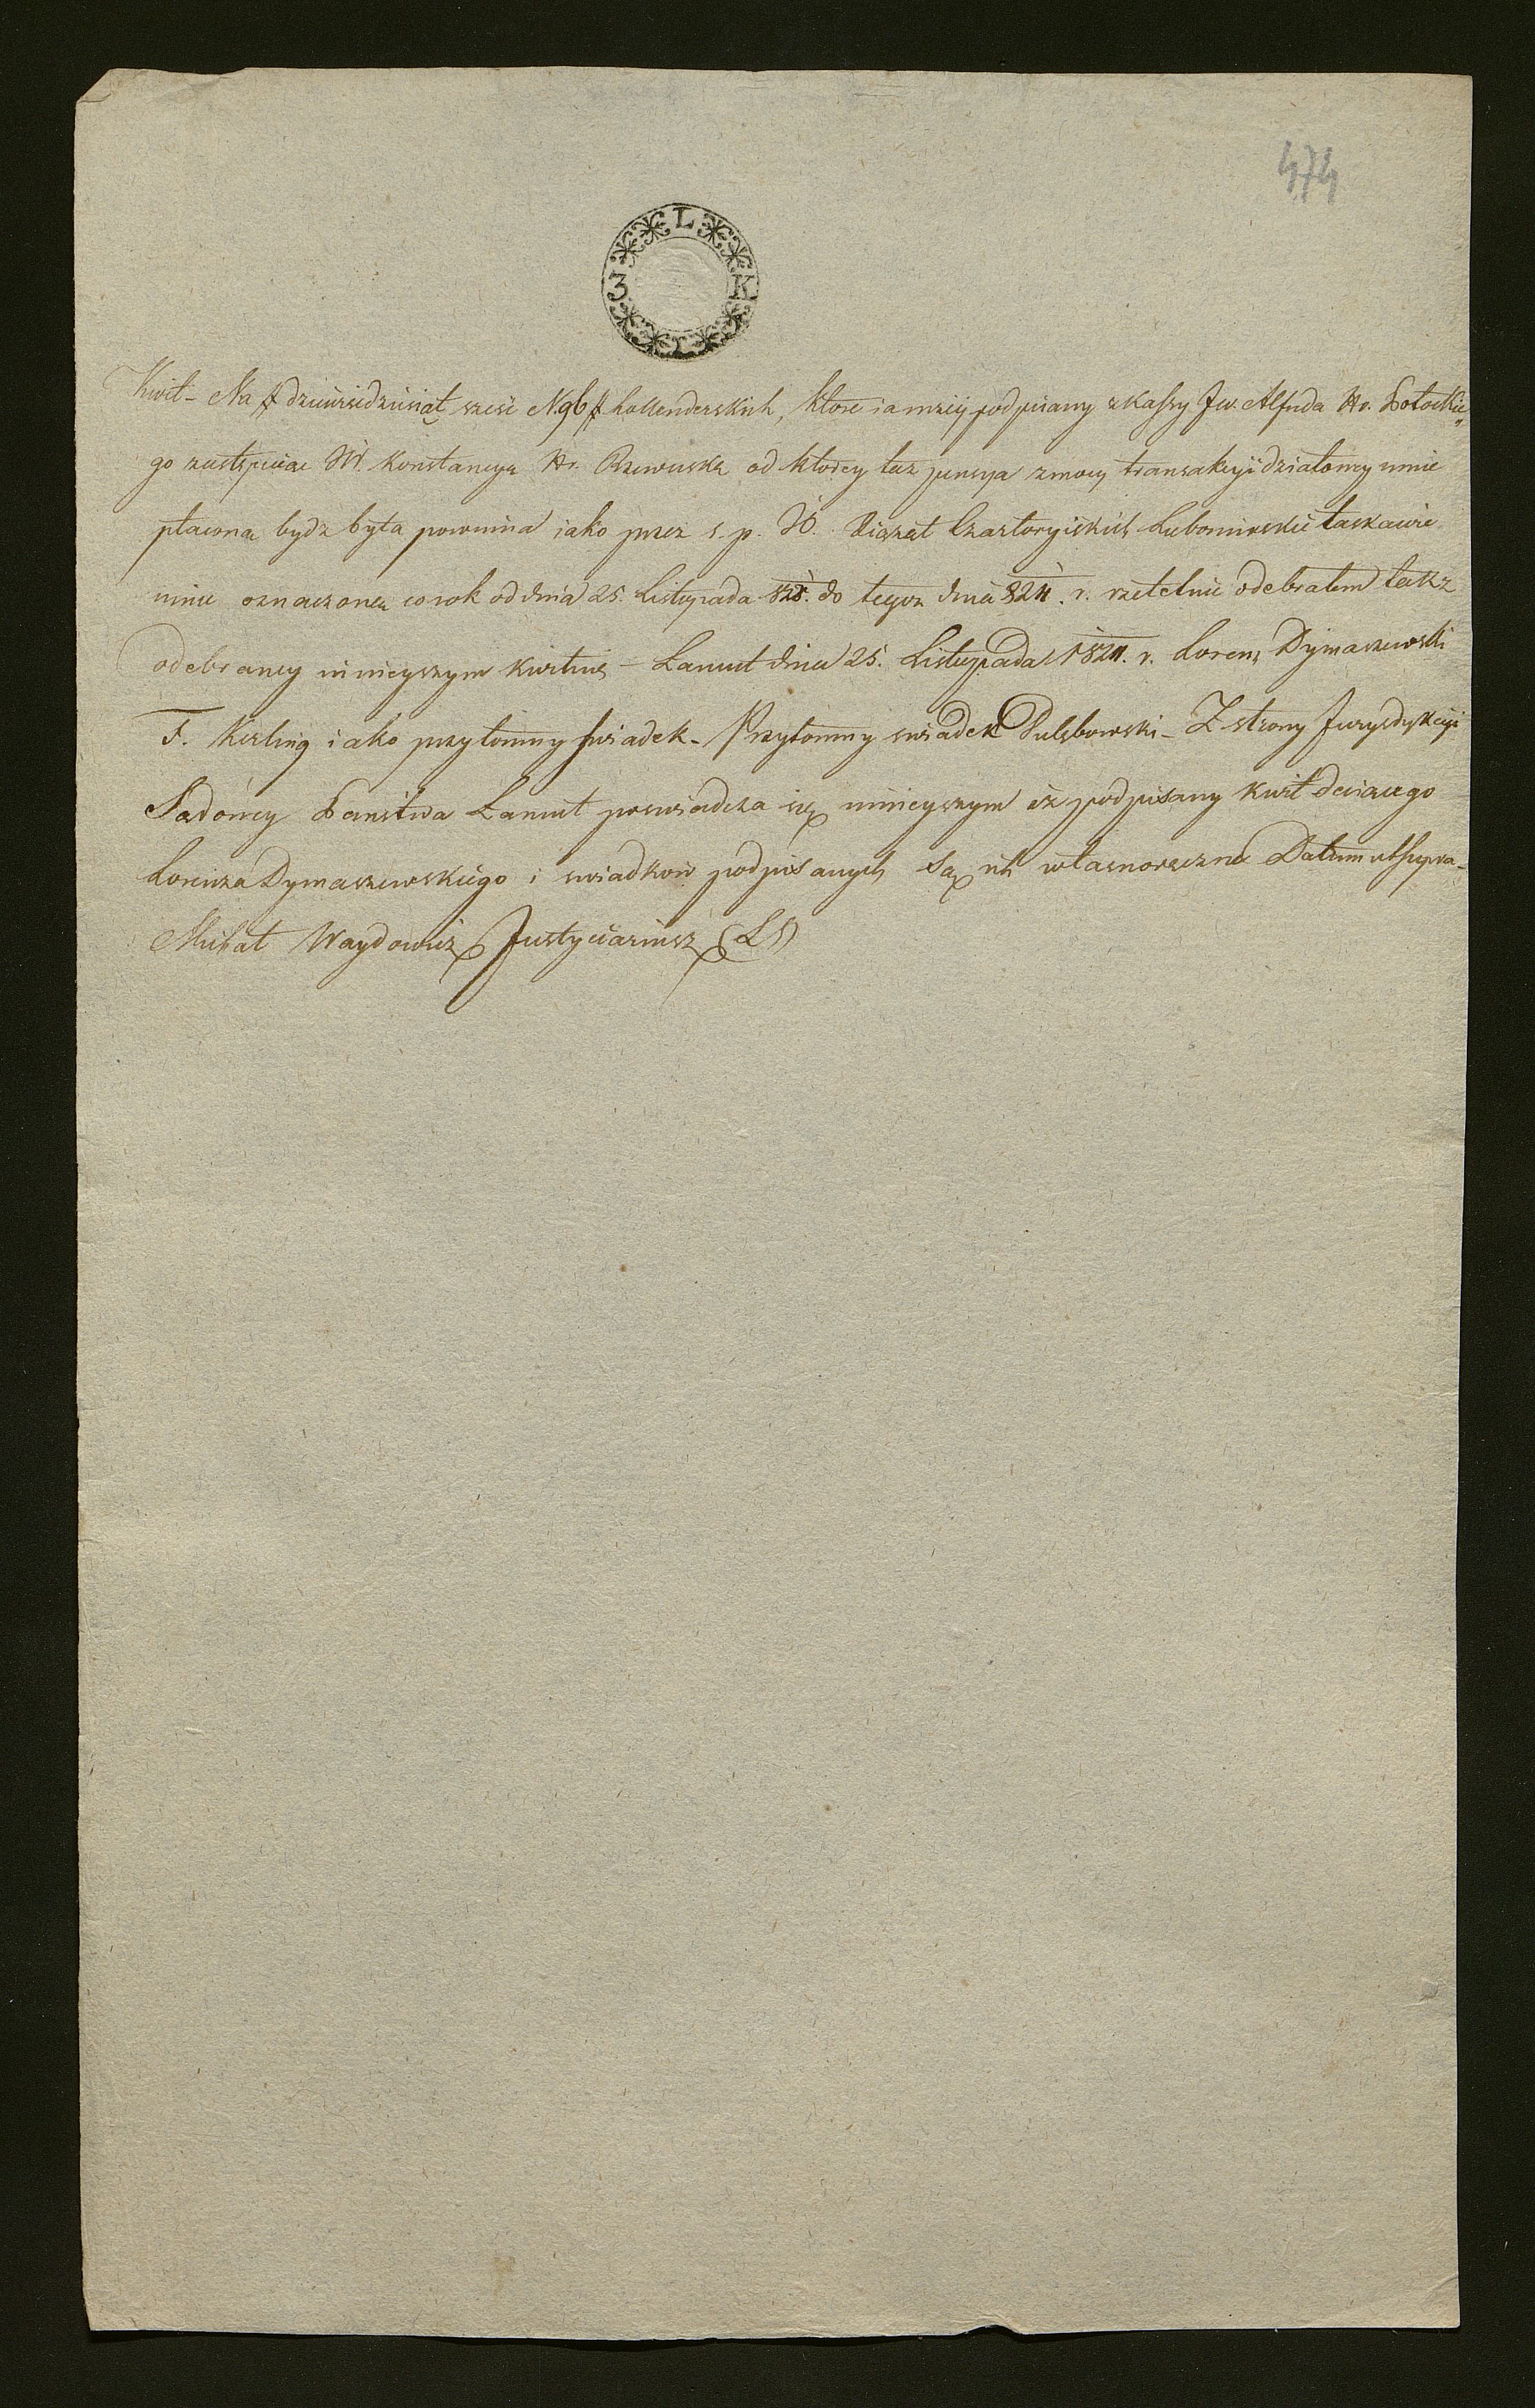 474
L
3 K
Kwit – Na # dziewiedziesiąt szesc N. 96 # hollenderskich, ktore ia nizey podpisany z kassy Jw. Alfreda Hr. Potockie„
go zastępuiac W. Konstancya Hr. Rzewuska od ktorey taz pensya z mocy transakcyi działowey mnie
płacona bydz była powinna iako przez s. p. Xiązat Czartoryiskich Lubomirskie łaskawie
mnie oznaczona co rok od dnia 25. Listopada do tegoz dnia 824. r. rzetelnie odebrałem tak z
odebraney ninieyszym kwituię – Lancut dnia 25. Listopada 1824. r. Lorenz Dymaszewski
F. Kirling iako przytomny swiadek – Przytomny swiadek Dulębowski – Z strony Jurysdykcyi
Sądowey Panstwa Lancut poswiadcza się ninieyszym iz podpisany kwit daiącego
Lorenza Dymaszewskiego i swiadkow podpisanych Są ich własnoręczne Datum ut supra –
Michał Waydowicz Justycÿariusz (LS)